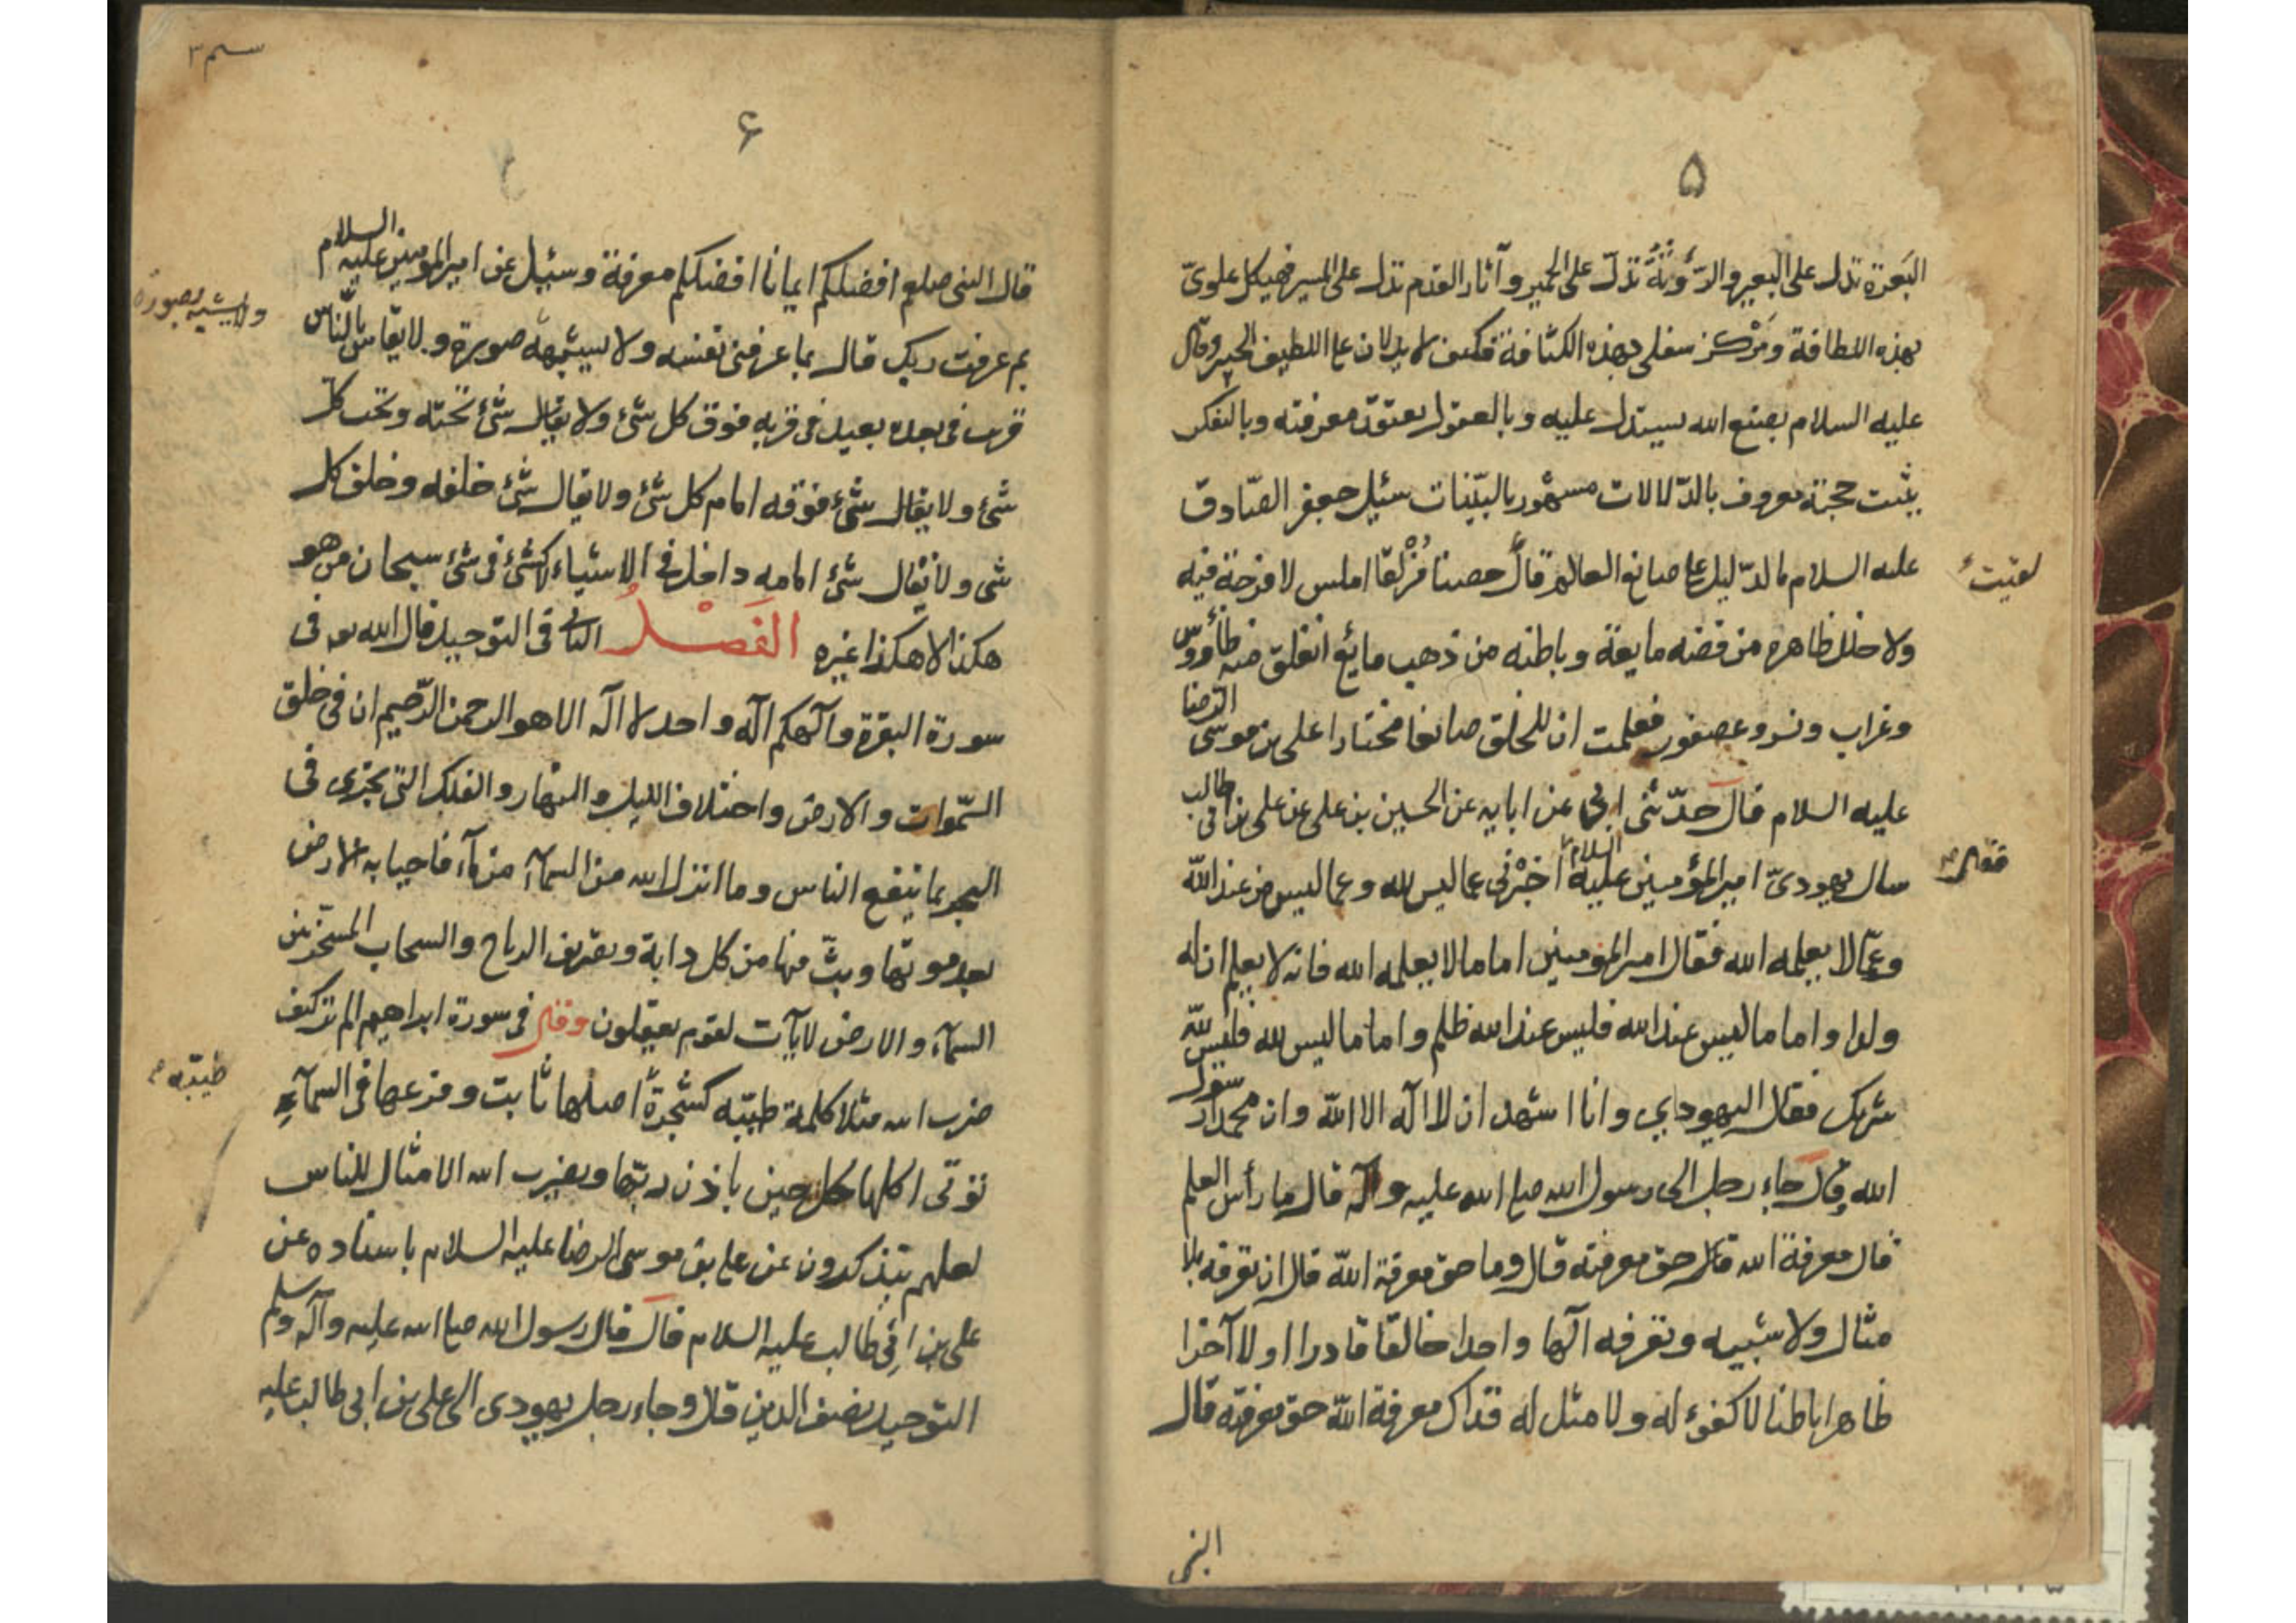 ۵
البَعرة تدل على البعير والرَّوثَةُ تدلّ على الحمير وآثار القدم تدل على المسير فهيكل علوىّ
بهذه اللطافة ومَرْكز سفلى بهذه الكثافة فكيف لا يدلان على اللطيف الخبير وقال
عليه السلام بصنع الله يستدل عليه وبالعقول يعتقد معرفته وبالتفكر
يثبت حجته معروف بالدّلالات مشهور بالبيّنات سئيل جعفر الصّادق
عليه السلام ما الدّليل على صانع العالم قال حصنا مُزْلقّا املس لا فرجة فيه
لقيت
ولا خلل ظاهره من فضه مايعة وباطنه من ذهب مايع انفلق منه طاوروس
وغراب ونسر وعصفور فعلمت ان للخلق صانعا مختارا على بن موسى الرّضا
عليه السلام قال حدّثنى ابى عن ابايه عن الحسين بن على عن على بن ابى طالب
سال يهودىّ امير المؤمنين عليه السلام اخبْرنى عما ليس لله وعما ليس من عند اللّه
فقال
وعمّا لا يعلمه الله فقال امير المؤمنين اما ما لا يعلمه الله فانه لا يعلم ان له
ولدا واما ما ليس عند الله فليس عند الله ظلم واما ما ليس لله فليس للّه
شريك فقال اليهودي وانا اشهد ان لا اله الا اللّه وان محمدا رسول
الله وقال جاء رجل الى رسول الله صلى الله عليه وآله قال ما رأس العلم
قال معرفة الله قال حق معرفته قال وما حق معرفة اللّه قال ان تعرفه بلا
مثال ولا شبيه وتعرفه الها واحدا خالقا قادرا اولا آخرا
ظاهرا باطنا لا كفوء له ولا مثل له فذاك معرفة اللّه حق معرفته قال
النبى
۶
قال النبى صلعم افضلكم ايمانا افضلكم معرفة وسئيل عن امير المومنين عليه السلام
بم عرفت ربك قال بما عرفنى نفسه ولا يشبهه صورة ولا يقاس بالنّاس
ولا يشبه بصورة
قريب فى بعده بعيد فى قربه فوق كل شئ ولا يقال شئ تحته وتحت كل
شئ ولا يقال شئ فوقه امام كل شئ ولا يقال شئ خلفه وخلف كل
شى ولا يقال شئ امامه داخل فى الاشياء لا كشئ فى شئ سبحان من هو
هكذا لا هكذا غيره الفَصْلُ الثانى فى التوحيد قال الله تعه فى
سورة البقرة وآلهكم آله واحد لا اله الا هو الرحمن الرّحيم ان فى خلق
السّموات والارض واختلاف الليل والنهار والفلك التى تجرى فى
البحر بما ينفع الناس وما انزل الله من السمآء من مآء فاحيا به الارض
بعد موتها وبثّ فيها من كل دابة وتصريف الرياح والسحاب المسخر بين
السمآء والارض لآيات لقوم يعقلون وقال فى سورة ابراهيم الم تر كيف
ضرب الله مثلا كلمة طيبّه كشجرة اصلها ثابت وفرعها فى السمآء
طيّبه
تؤتى اكلها كل حين باذن ربّها ويضرب الله الامثال للناس
لعلهم يتذكرون عن على بن موسى الرضا عليه السلام باسناده عن
على بن ابى طالب عليه السلام قال قال رسول الله صلى الله عليه وآله وسلم
التوحيد نصف الدين قال وجاء رجل يهودى الى على بن ابى طالب عليه